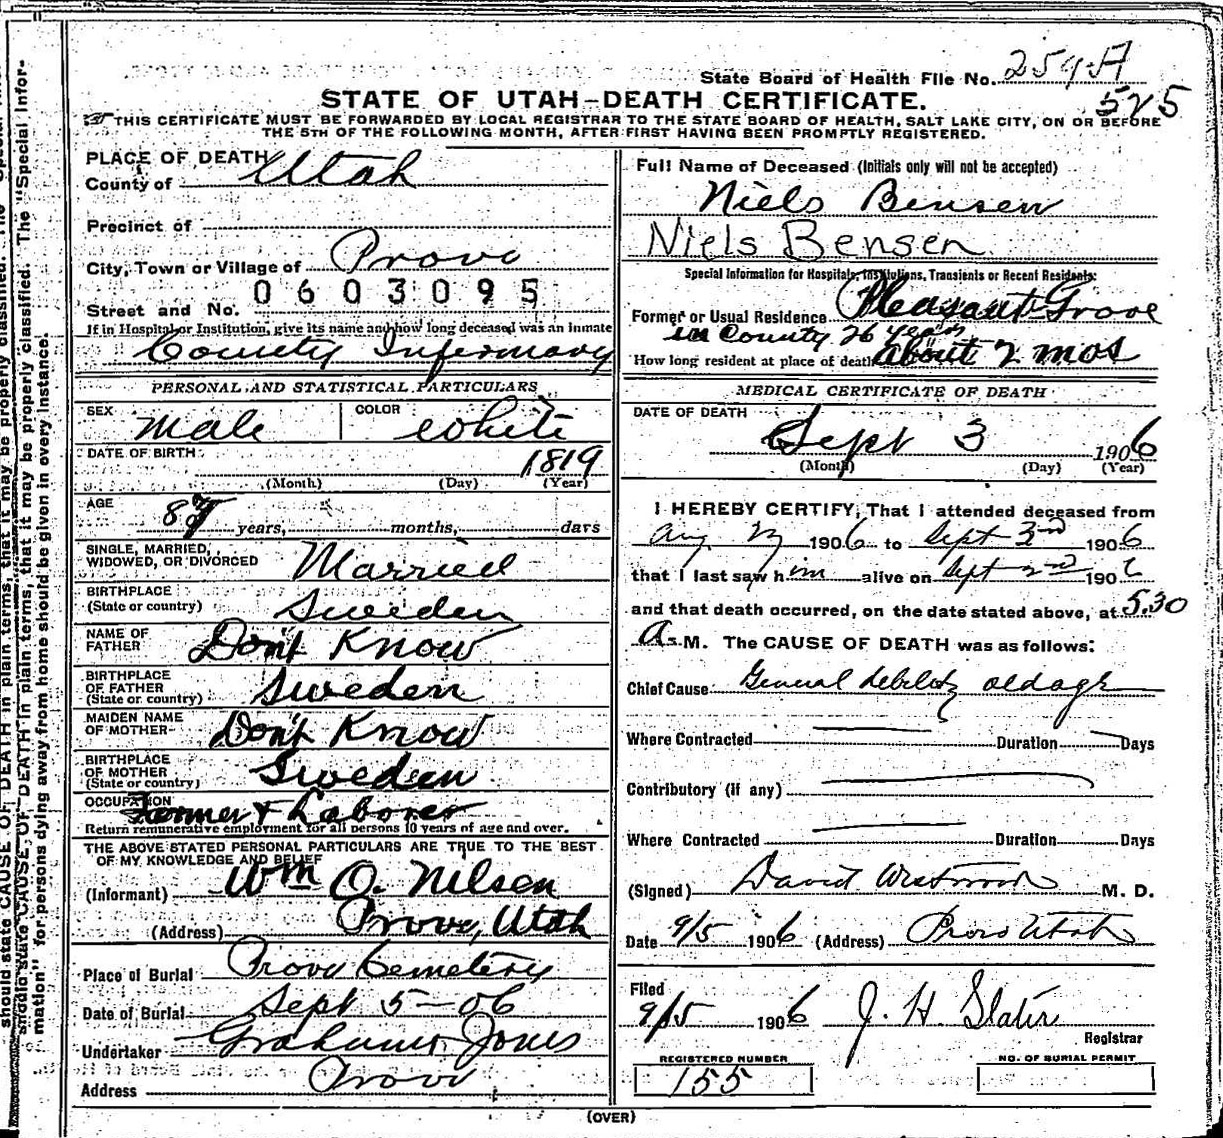 State Board of Health File No. 259-A
525
STATE OF UTAH-DEATH CERTIFICATE.
THIS CERTIFICATE MUST BE FORWARDED BY LOCAL REGISTRAR TO THE STATE BOARD OF HEALTH, SALT LAKE CITY, ON OR BEFORE
THE 5TH OF THE FOLLOWING MONTH, AFTER FIRST HAVING BEEN PROMPTLY REGISTERED.
PLACE OF DEATH
County of Utah
Precinct of
City, Town or Village of Provo
Street and No. 0603095
If in Hospital or Institution, give its name and how long deceased was an inmate
County Infirmary
PERSONAL AND STATISTICAL PARTICULARS
SEX Male COLOR White
DATE OF BIRTH 1819
(Month) (Day) (Year)
AGE 87 years, months, days
SINGLE, MARRIED, WIDOWED, OR DIVORCED Married
BIRTHPLACE (State or country) Sweden
NAME OF FATHER Don't Know
BIRTHPLACE OF FATHER (State or country) Sweden
MAIDEN NAME OF MOTHER Don't Know
BIRTHPLACE OF MOTHER (State or country) Sweden
OCCUPATION Farmer & Laborer
Return remunerative employment for all persons 10 years of age and over.
THE ABOVE STATED PERSONAL PARTICULARS ARE TRUE TO THE BEST
OF MY KNOWLEDGE AND BELIEF
(Informant) Wm O. Nilsen
(Address) Provo, Utah
Place of Burial Provo Cemetery
Date of Burial Sept 5-06
Undertaker Graham & Jones
Address Provo
Full Name of Deceased (Initials only will not be accepted)
Niels Bensen
Niels Bensen
Special Information for Hospitals, Institutions, Transients or Recent Residents:
Former or Usual Residence Pleasant Grove
in County 26 years
How long resident at place of death about 2 mos
MEDICAL CERTIFICATE OF DEATH
DATE OF DEATH
Sept 3 1906
(Month) (Day) (Year)
I HEREBY CERTIFY, That I attended deceased from
Aug 1906 to Sept 3rd 1906
that I last saw him alive on Sept 2nd 1906
and that death occurred, on the date stated above, at 5.30
A. M. The CAUSE OF DEATH was as follows:
Chief Cause General debility old age
Where Contracted Duration Days
Contributory (if any)
Where Contracted Duration Days
(Signed) David Westwood M. D.
Date 9/5 1906 (Address) Provo Utah
Filed
9/5 1906 J. H. Slater
Registrar
REGISTERED NUMBER
155
NO. OF BURIAL PERMIT
(OVER)
should state CAUSE OF DEATH in plain terms, that it may be properly classified. The "Special Infor-
mation" for persons dying away from home should be given in every instance.